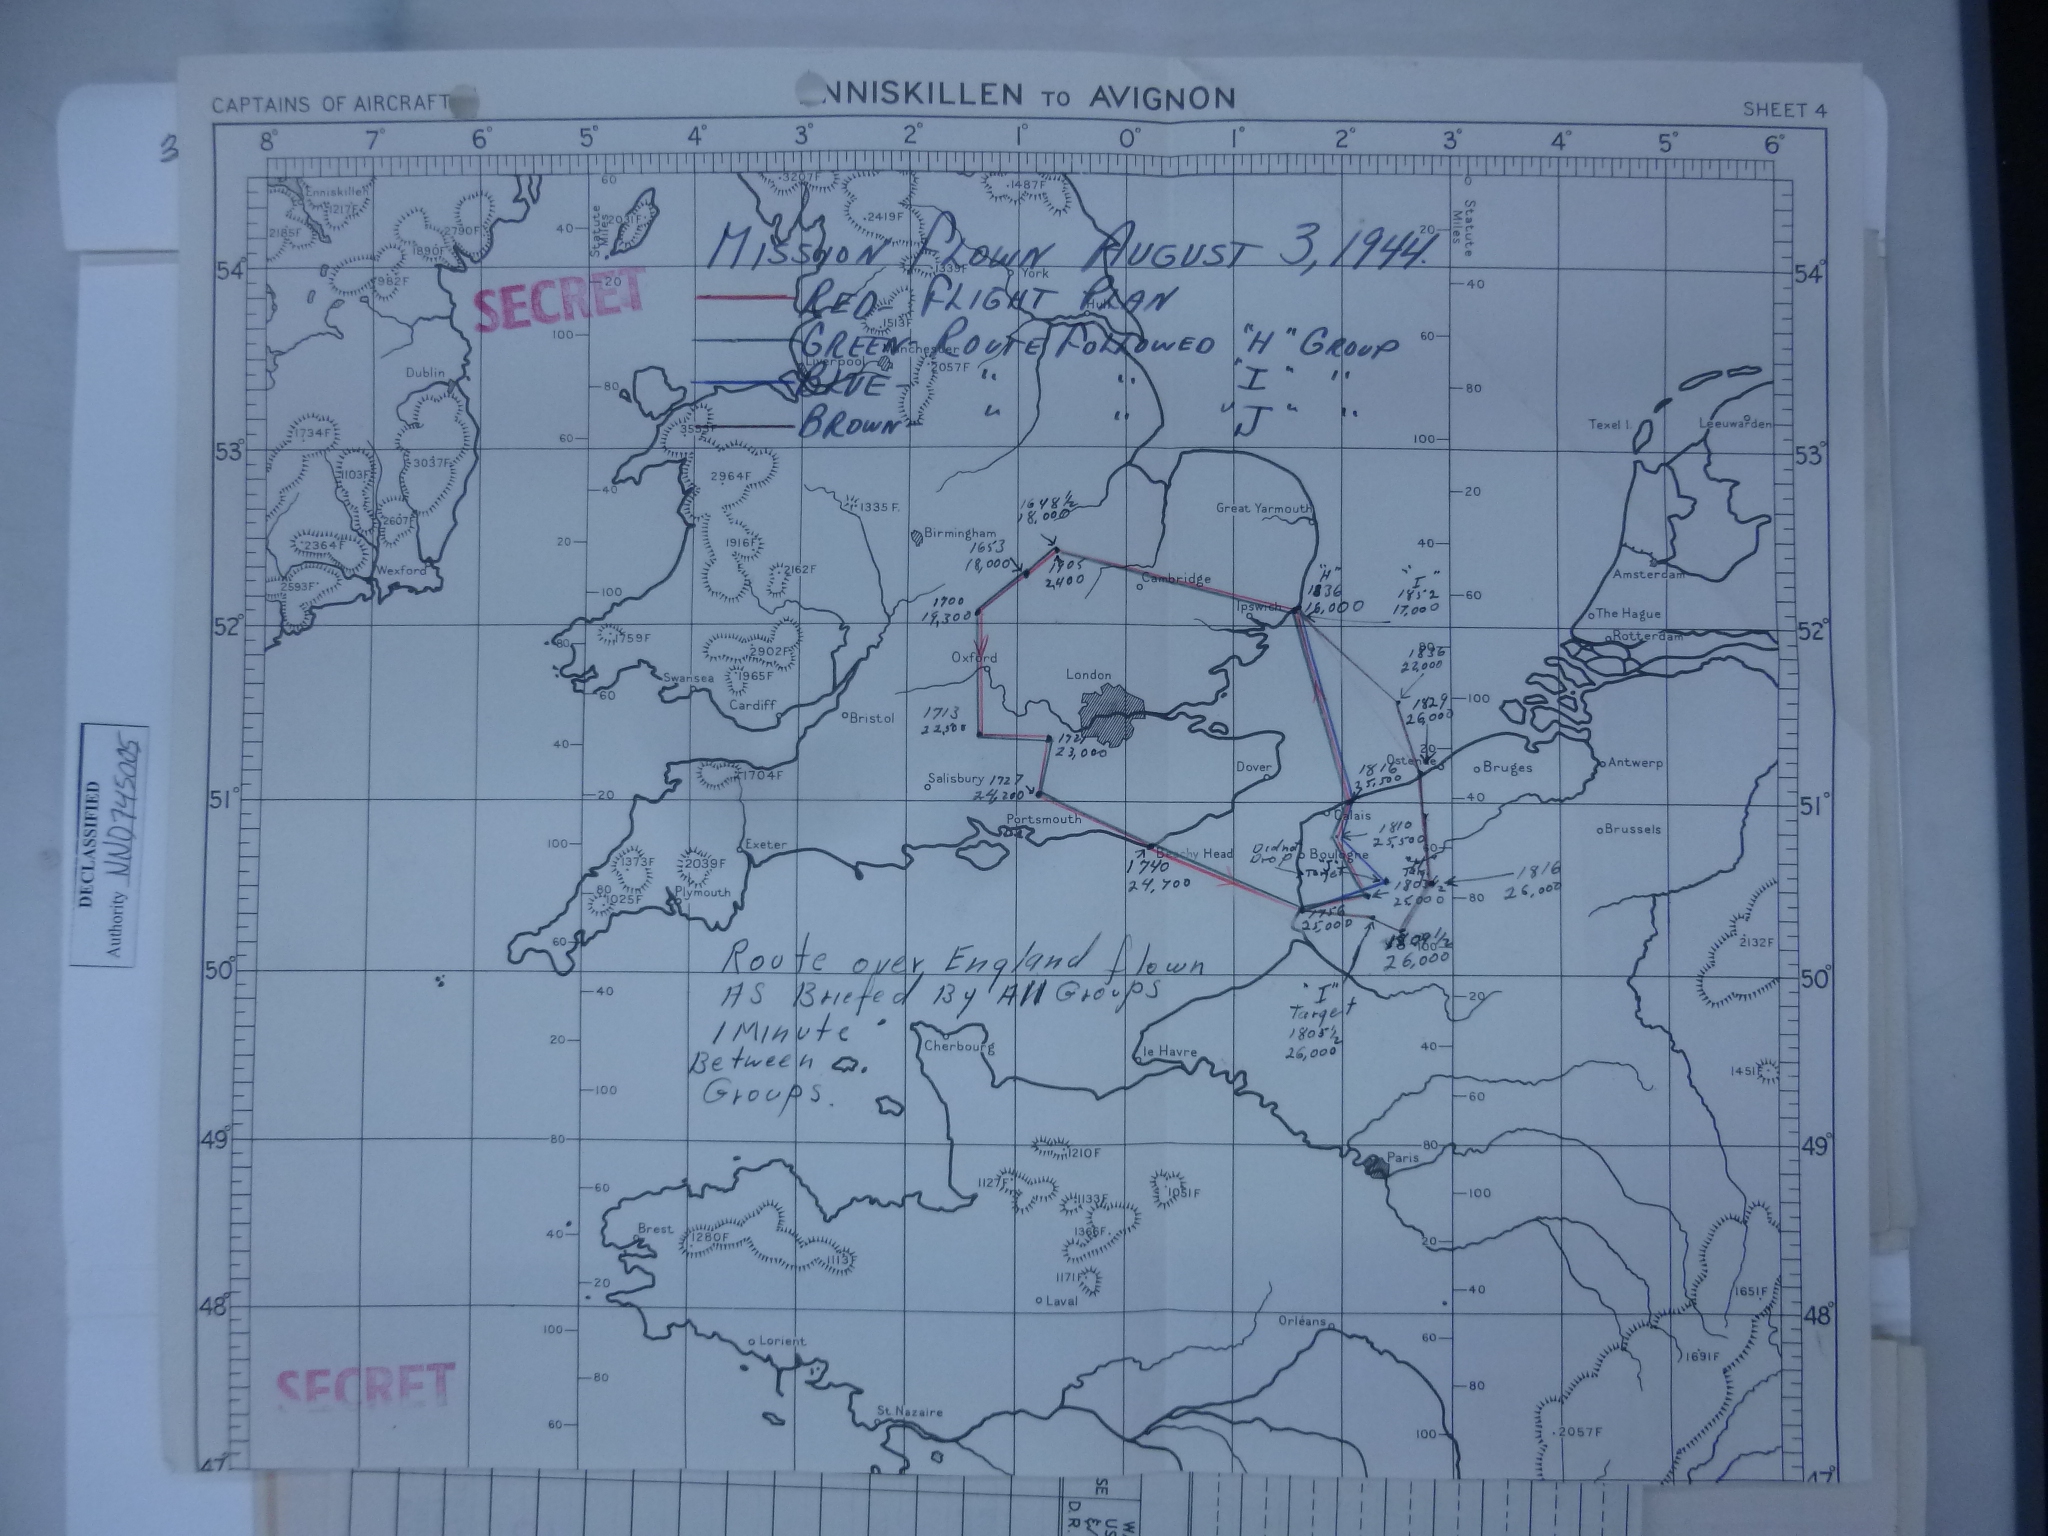 CAPTAINS OF AIRCRAFT
NNISKILLEN TO AVIGNON
SHEET 4
3
8° 7° 6° 5° 4° 3° 2° 1° 0° 1° 2° 3° 4° 5° 6°
Enniskillen
1217F
2185F
2790F
1890F
982F
2031F
3207F
2419F
1487F
Statute Miles
Statute Miles
MISSION FLOWN AUGUST 3, 1944.
SECRET
RED FLIGHT PLAN
GREEN ROUTE FOLLOWED "H" GROUP
BLUE " " "I" "
BROWN " " "J" "
54° 54°
1339F
York
Hull
1513F
Manchester
Liverpool
2057F
Dublin
1734F
1103F
3037F
2607F
2364F
2593F
Wexford
3553F
2964F
1335F.
1916F
2162F
1759F
2902F
1965F
53° 53°
Texel I.
Leeuwarden
Great Yarmouth
Birmingham
1648½
18,000
1653
18,000
1905
2400
Cambridge
1700
19,300
Ipswich
"H"
1836
16,000
"I"
1852
17,000
Amsterdam
The Hague
Rotterdam
52° 52°
Swansea
Cardiff
Bristol
Oxford
London
1836
22,000
1829
26,000
1713
22,500
23,000
Salisbury
1727
24,200
Dover
Ostende
Bruges
Antwerp
1816
25,500
51° 51°
1704F
Exeter
Portsmouth
Calais
Brussels
1810
25,500
Boulogne
Did not
Drop
Beachy Head
1740
24,700
1373F
2039F
1025F
Plymouth
25,000
25,000
1816
26,000
26,000
2132F
50° 50°
Route over England flown
AS Briefed By All Groups
1 Minute
Between
Groups.
"I"
Target
1805½
26,000
Cherbourg
le Havre
1451F
49° 49°
1210F
1127F
1133F
1051F
1366F
1171F
Paris
Brest
1280F
1113F
Laval
Lorient
Orléans
1651F
1691F
48° 48°
St. Nazaire
2057F
47° 47°
SECRET
DECLASSIFIED
Authority NND745005
SE
D.R.